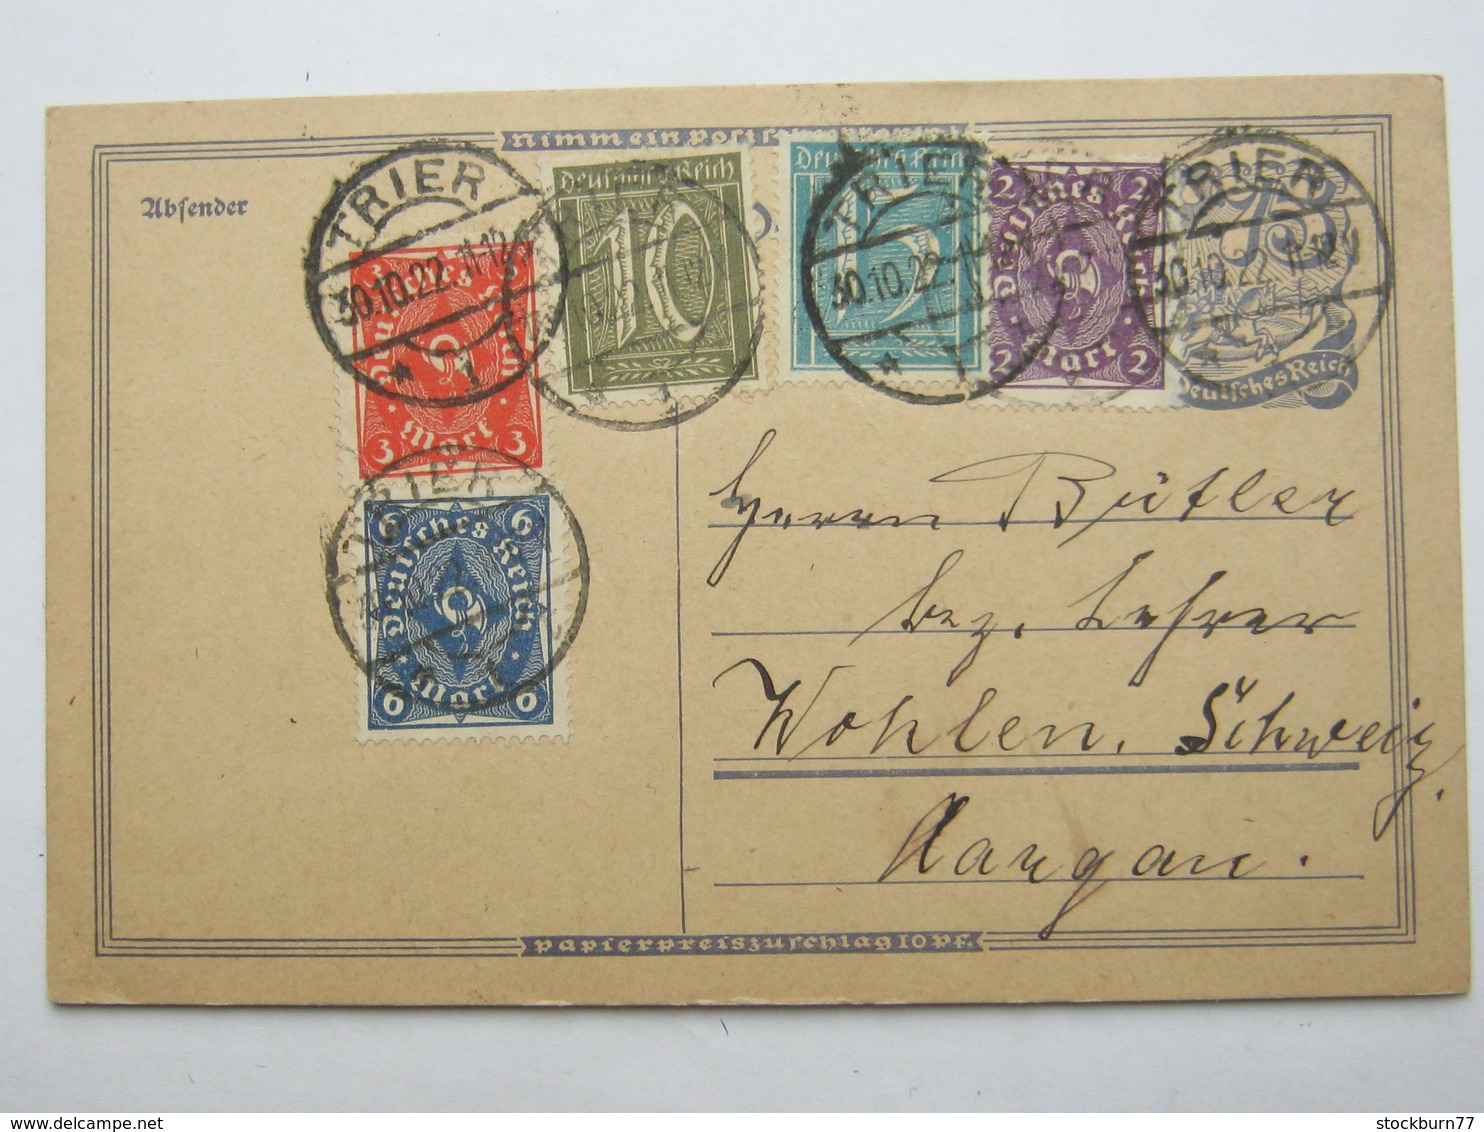 Nimm ein Postscheckkonto
Absender
TRIER
30.10.22. 11-12V
* 1
Deutsches Reich
10
TRIER
Deutsches Reich
15
TRIER
30.10.22. 11-12V
* 1
2 2
Deutsches Reich
2 Mark 2
TRIER
30.10.22. 11-12V
* 1
75
Deutsches Reich
3 3
Deutsches Reich
3 Mark 3
TRIER
6 6
Deutsches Reich
6 Mark 6
Herrn Bütler
bez. Lehrer
Wohlen, Schweiz.
Aargau.
Papierpreiszuschlag 10 Pf.
stockburn77